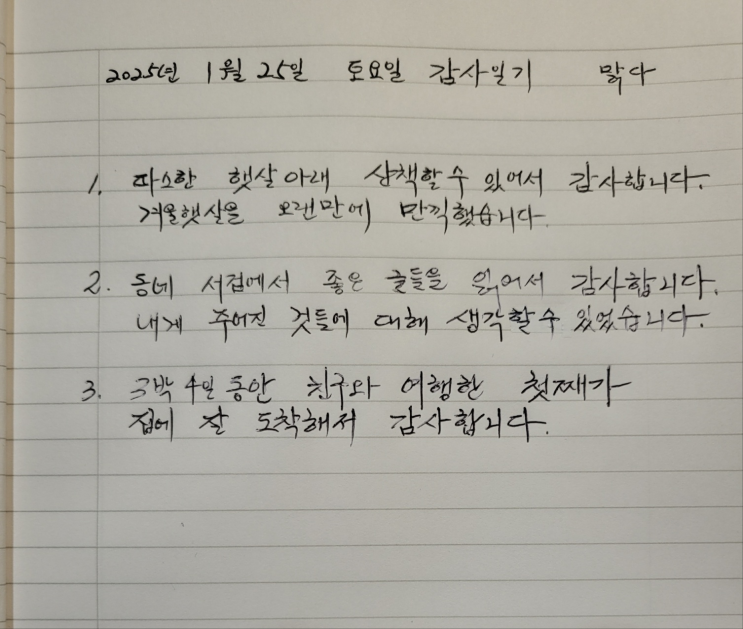 2025년 1월 25일 토요일 감사일기 맑다
1. 따스한 햇살아래 산책할수 있어서 감사합니다.
겨울햇살을 오랜만에 만끽했습니다.
2. 동네 서점에서 좋은 글들을 읽어서 감사합니다.
내게 주어진 것들에 대해 생각할수 있었습니다.
3. 3박 4일 동안 친구와 여행한 첫째가
집에 잘 도착해서 감사합니다.